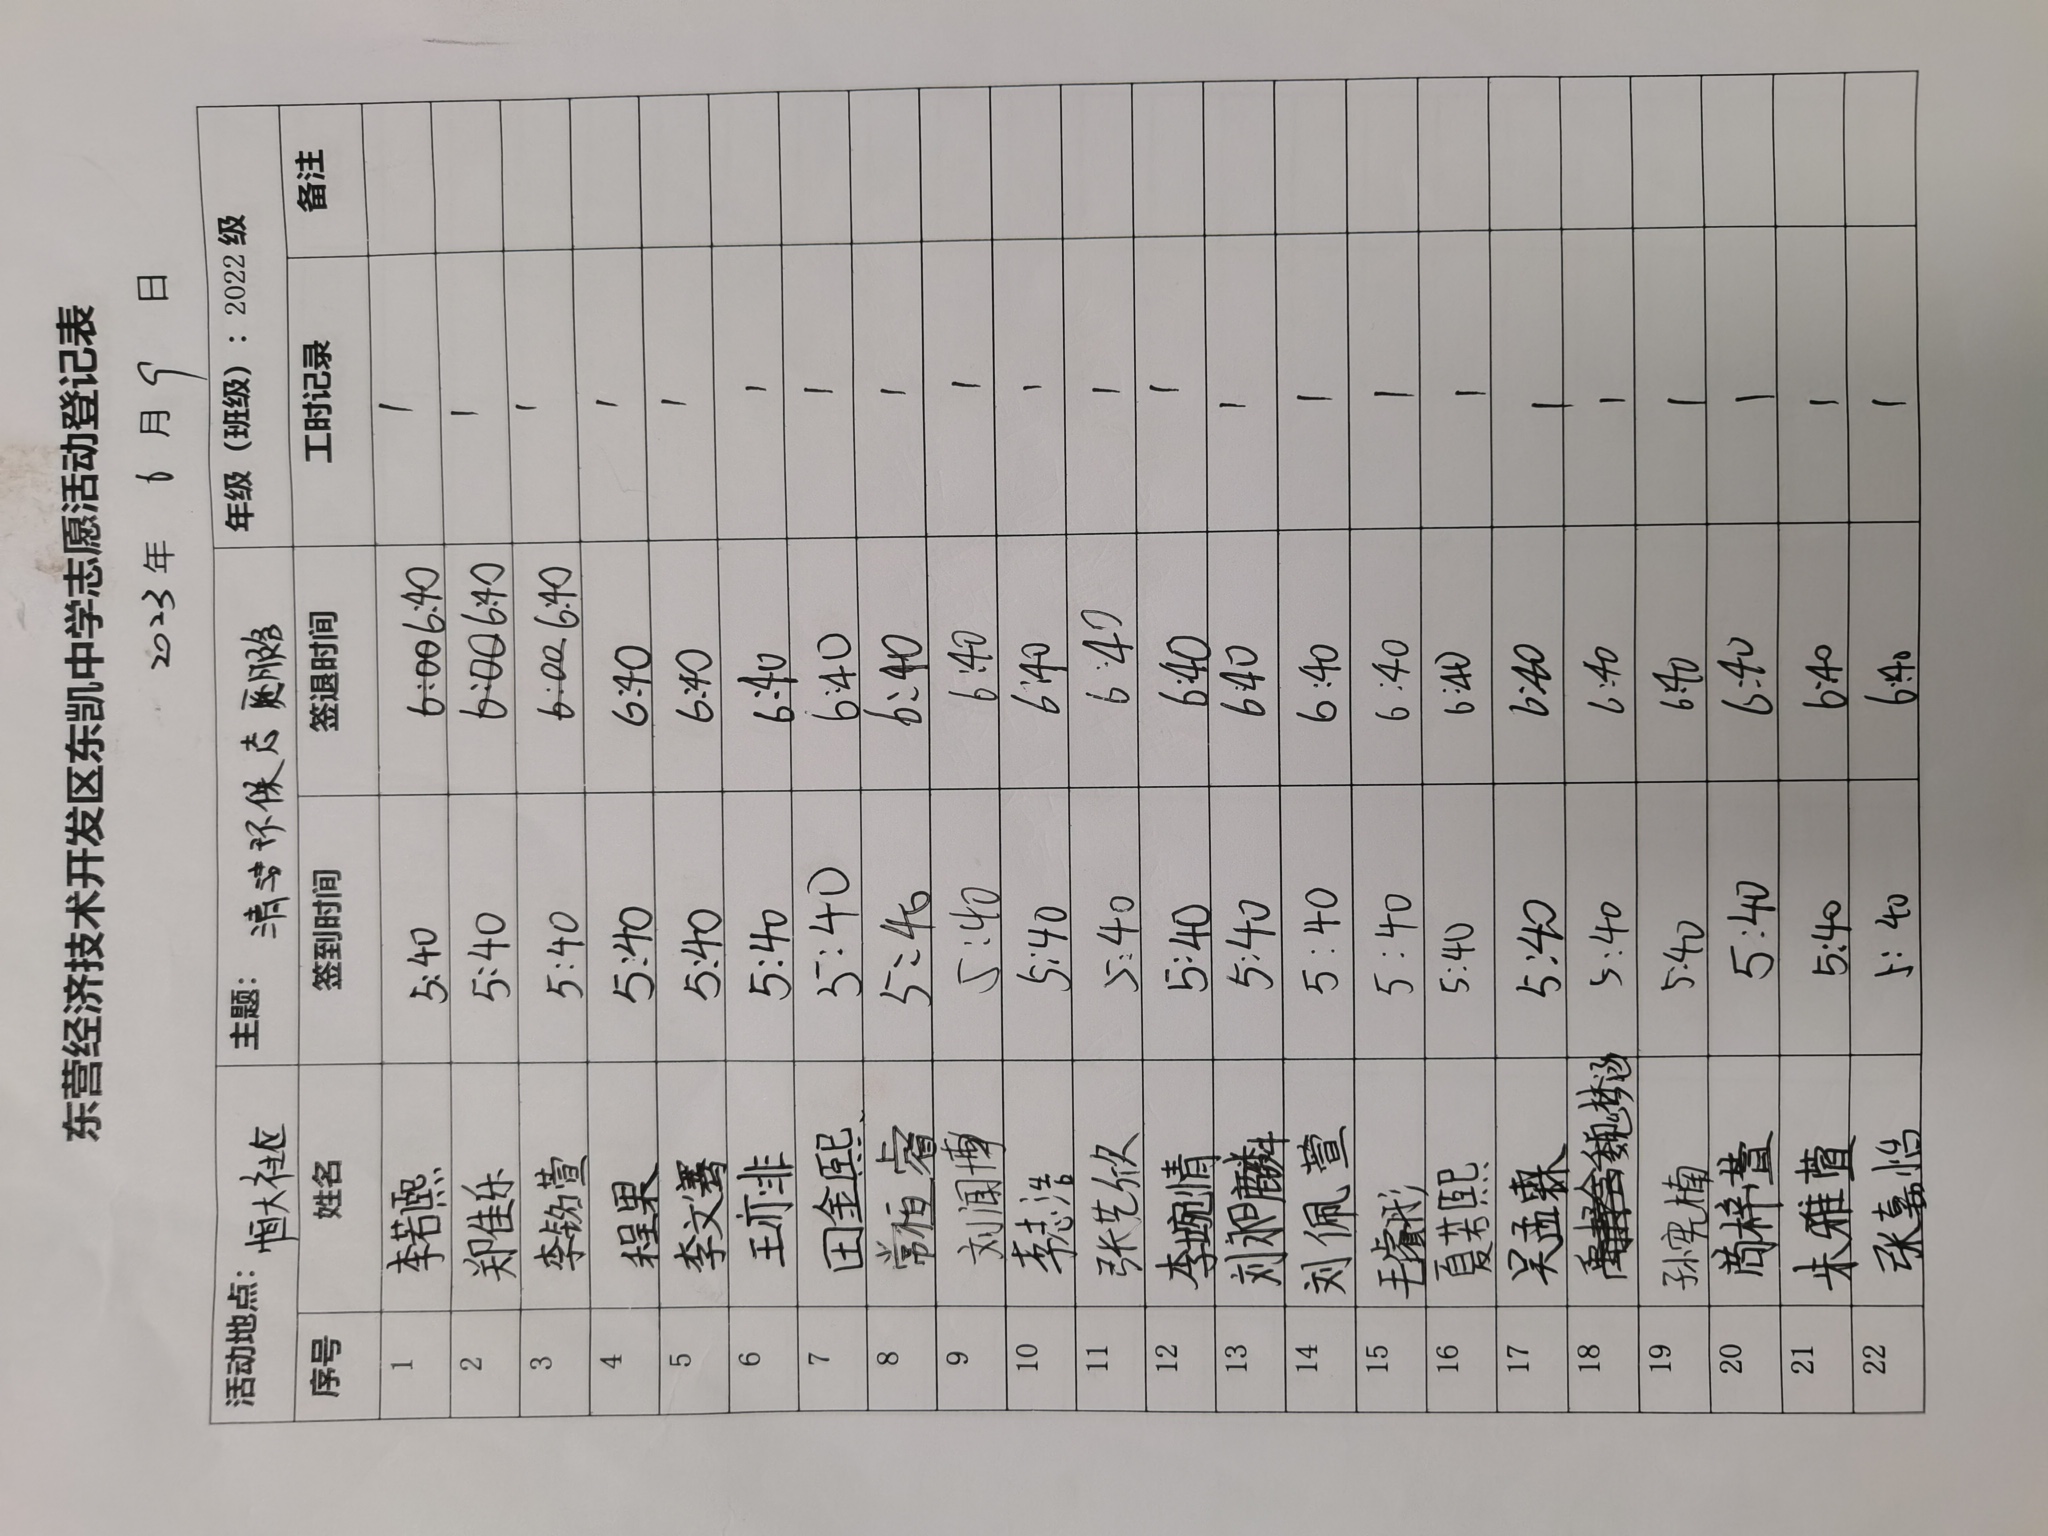 东营经济技术开发区东凯中学志愿活动登记表
2023年 6月9日
活动地点：恒大社区 主题：清洁环保志愿服务 年级（班级）：2022级
序号 姓名 签到时间 签退时间 工时记录 备注
1 李若熙 5:40 6:00 6:40 1
2 郑佳乐 5:40 6:00 6:40 1
3 李钫萱 5:40 6:00 6:40 1
4 程果 5:40 6:40 1
5 李文骞 5:40 6:40 1
6 王亦非 5:40 6:40 1
7 田金熙 5:40 6:40 1
8 常恒睿 5:40 6:40 1
9 刘润博 5:40 6:40 1
10 李志浩 5:40 6:40 1
11 张艺欣 5:40 6:40 1
12 李婉情 5:40 6:40 1
13 刘昶麟 5:40 6:40 1
14 刘佩萱 5:40 6:40 1
15 毛睿彤 5:40 6:40 1
16 夏若熙 5:40 6:40 1
17 吴孟霖 5:40 6:40 1
18 魏梦涵 5:40 6:40 1
19 孙宪楠 5:40 6:40 1
20 尚梓萱 5:40 6:40 1
21 朱雅萱 5:40 6:40 1
22 张嘉怡 5:40 6:40 1